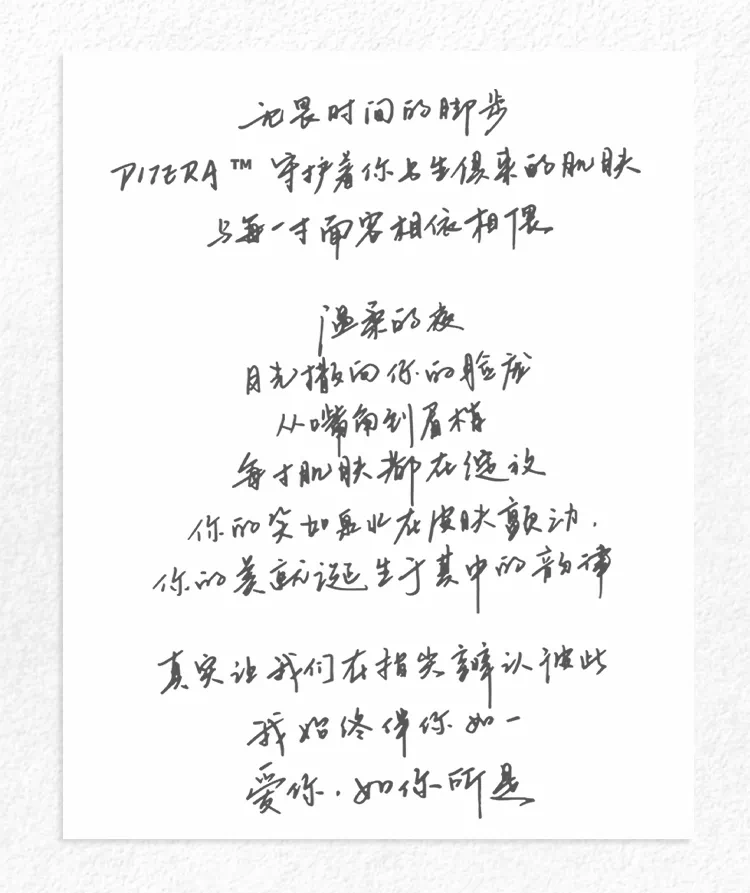 无畏时间的脚步
PITERA™ 守护着你与生俱来的肌肤
与每一寸面容相依相偎
温柔的夜
目光撒向你的脸庞
从嘴角到眉梢
每寸肌肤都在绽放
你的笑如泉水在皮肤颤动.
你的美就诞生于其中的韵律
真实让我们在指尖辨认彼此
我始终伴你如一
爱你.如你所是